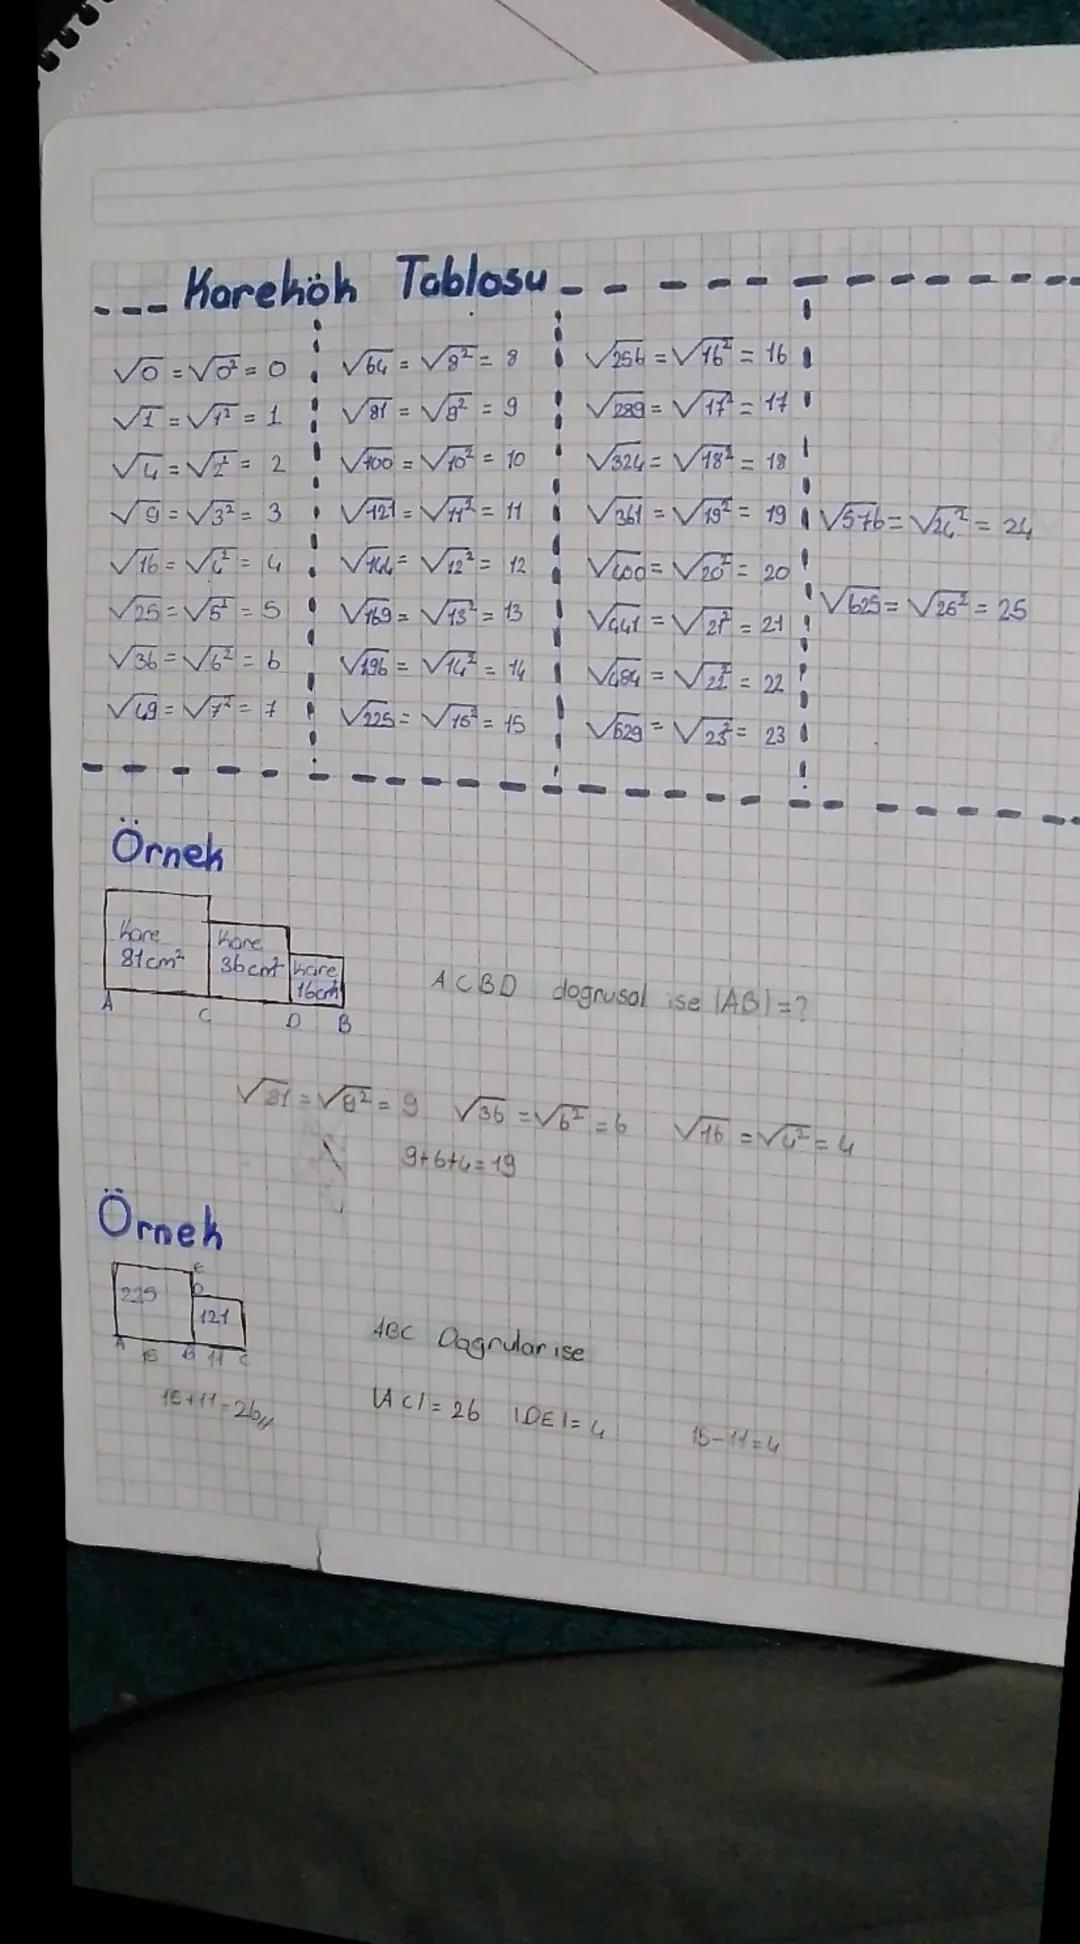 Karekök Tablosu
√0 = √0² = 0
√1 = √1² = 1
√4 = √2² = 2
√9 = √3² = 3
√16 = √4² = 4
√25 = √5² = 5
√36 = √6² = 6
√49 = √7² = 7
√64 = √8² = 8
√81 = √9² = 9
√100 = √10² = 10
√121 = √11² = 11
√144 = √12² = 12
√169 = √13² = 13
√196 = √14² = 14
√225 = √15² = 15
√256 = √16² = 16
√289 = √17² = 17
√324 = √18² = 18
√361 = √19² = 19
√400 = √20² = 20
√441 = √21² = 21
√484 = √22² = 22
√529 = √23² = 23
√576 = √24² = 24
√625 = √25² = 25
Örnek
Kare
81cm²
Kare
36cm²
Kare
16cm²
A C D B
ACBD dogrusal ise |AB|=?
√81 = √9² = 9 √36 = √6² = 6 √16 = √4² = 4
9+6+4=19
Örnek
E
D
225
121
A 15 B 11 C
ABC Dogrular ise
15+11=26//
|AC|=26 |DE|=4
15-11=4